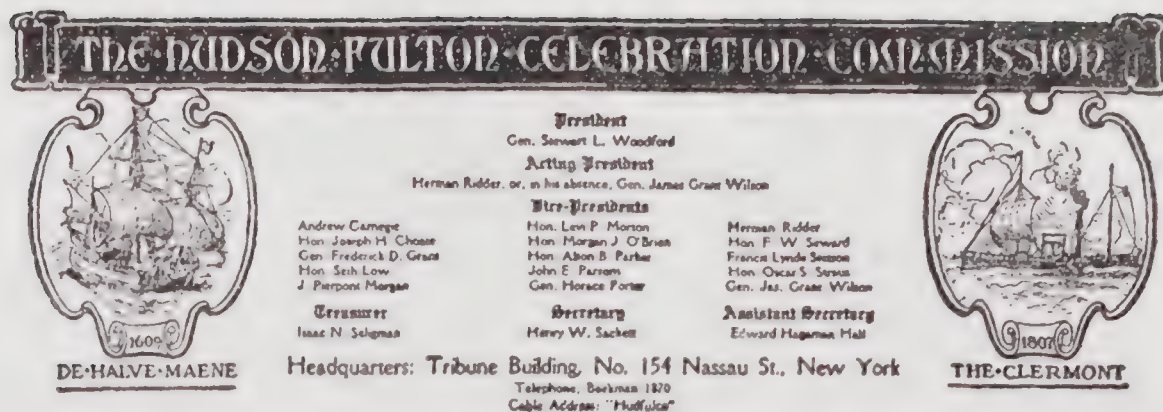 THE·HUDSON·FULTON·CELEBRATION·COMMISSION
President
Gen. Stewart L. Woodford
Acting President
Herman Ridder, or, in his absence, Gen. James Grant Wilson
Vice-Presidents
Andrew Carnegie
Hon. Joseph H. Choate
Gen. Frederick D. Grant
Hon. Seth Low
J. Pierpont Morgan
Hon. Levi P. Morton
Hon. Morgan J. O'Brien
Hon. Alton B. Parker
John E. Parsons
Gen. Horace Porter
Herman Ridder
Hon. F. W. Seward
Francis Lynde Stetson
Hon. Oscar S. Straus
Gen. Jas. Grant Wilson
Treasurer
Isaac N. Seligman
Secretary
Henry W. Sackett
Assistant Secretary
Edward Hagaman Hall
1609
DE·HALVE·MAENE
Headquarters: Tribune Building, No. 154 Nassau St., New York
Telephone, Beekman 1870
Cable Address: "Hudfulco"
1807
THE·CLERMONT